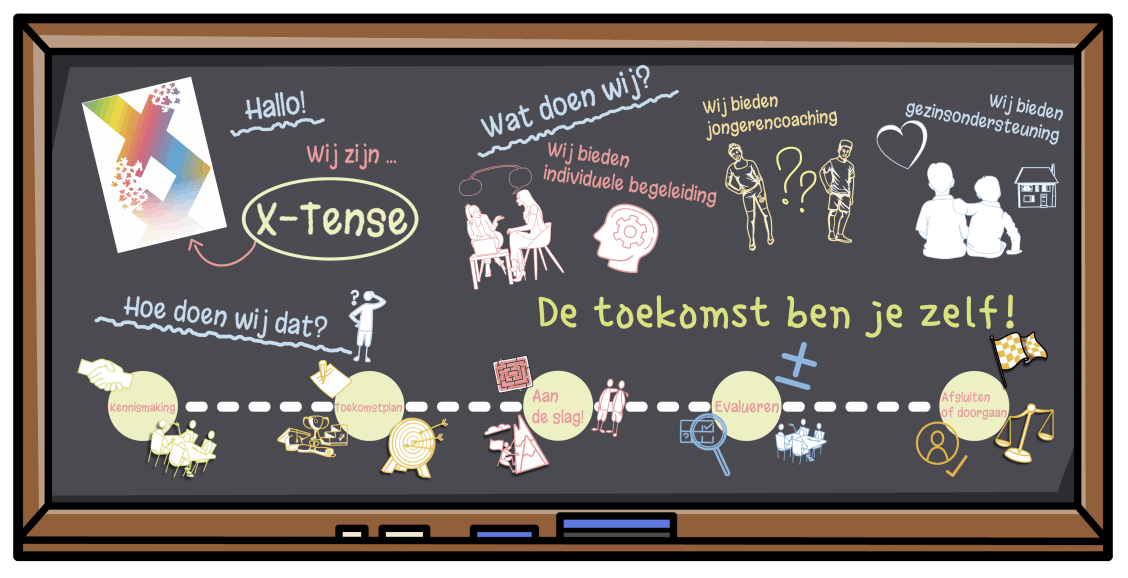 Hallo!
Wij zijn ...
X-Tense
Wat doen wij?
Wij bieden
individuele begeleiding
Wij bieden
jongerencoaching
Wij bieden
gezinsondersteuning
Hoe doen wij dat?
?
De toekomst ben je zelf!
Kennismaking
Toekomstplan
Aan
de slag!
Evalueren
Afsluiten
of doorgaan